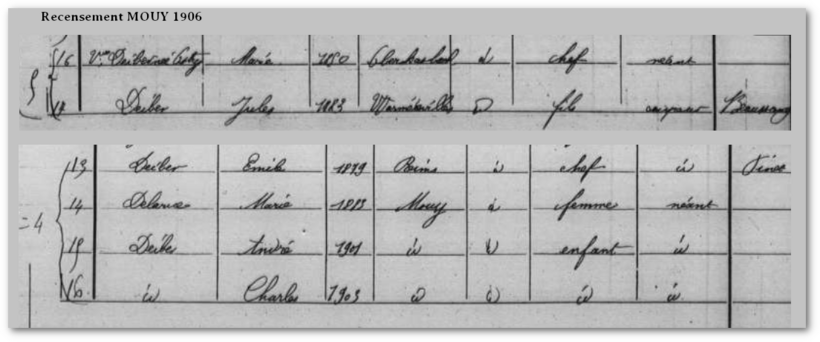 Recensement MOUY 1906
16 Vve Deiber née Marie 1850 id chef néant
18 Deiber Jules 1883 id fils
13 Deiber Emile 1879 Reims id chef id
=4 14 Delarue Marie 1883 Mouy id femme néant
15 Deiber André 1901 id id enfant id
16 id Charles 1903 id id id id